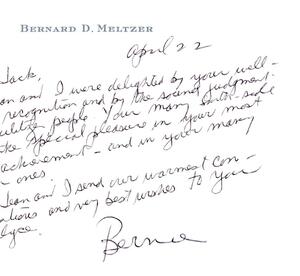 BERNARD D. MELTZER
April 22
Jack,
on and I were delighted by your well-
recognition and by the sound judgment
people. Your many
special pleasure in your most
achievement – and in your many
ones.
Jean and I send our warmest con-
ations and very best wishes to you
lyce.
Bernie